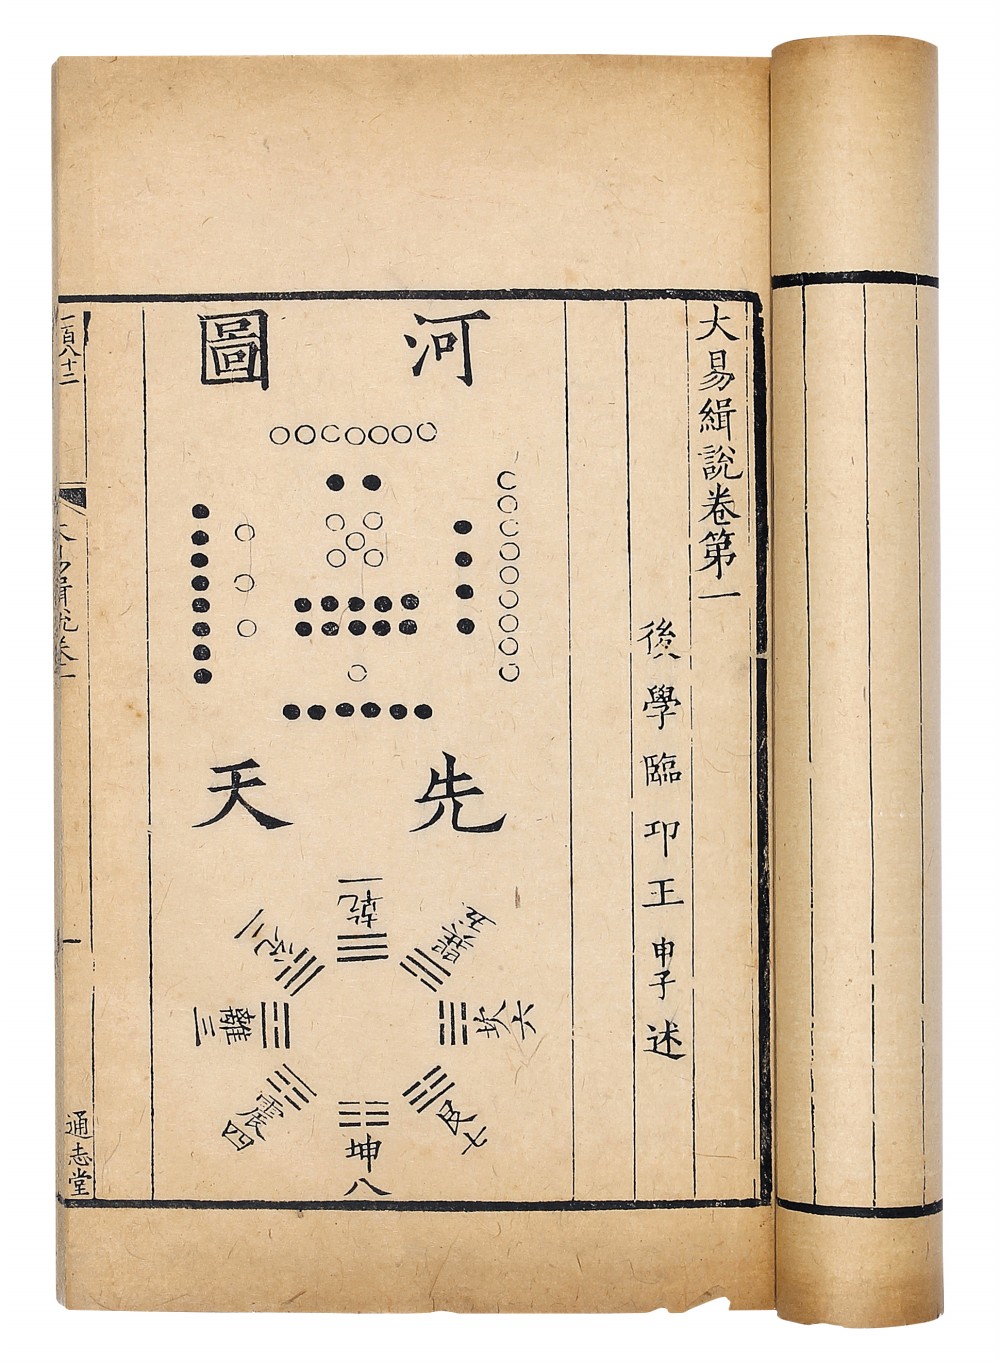 大易緝說卷第一
後學臨卭王申子述
河圖
先天
乾一
兌二
離三
震四
巽五
坎六
艮七
坤八
一百八十二
大易緝說卷一
一
通志堂